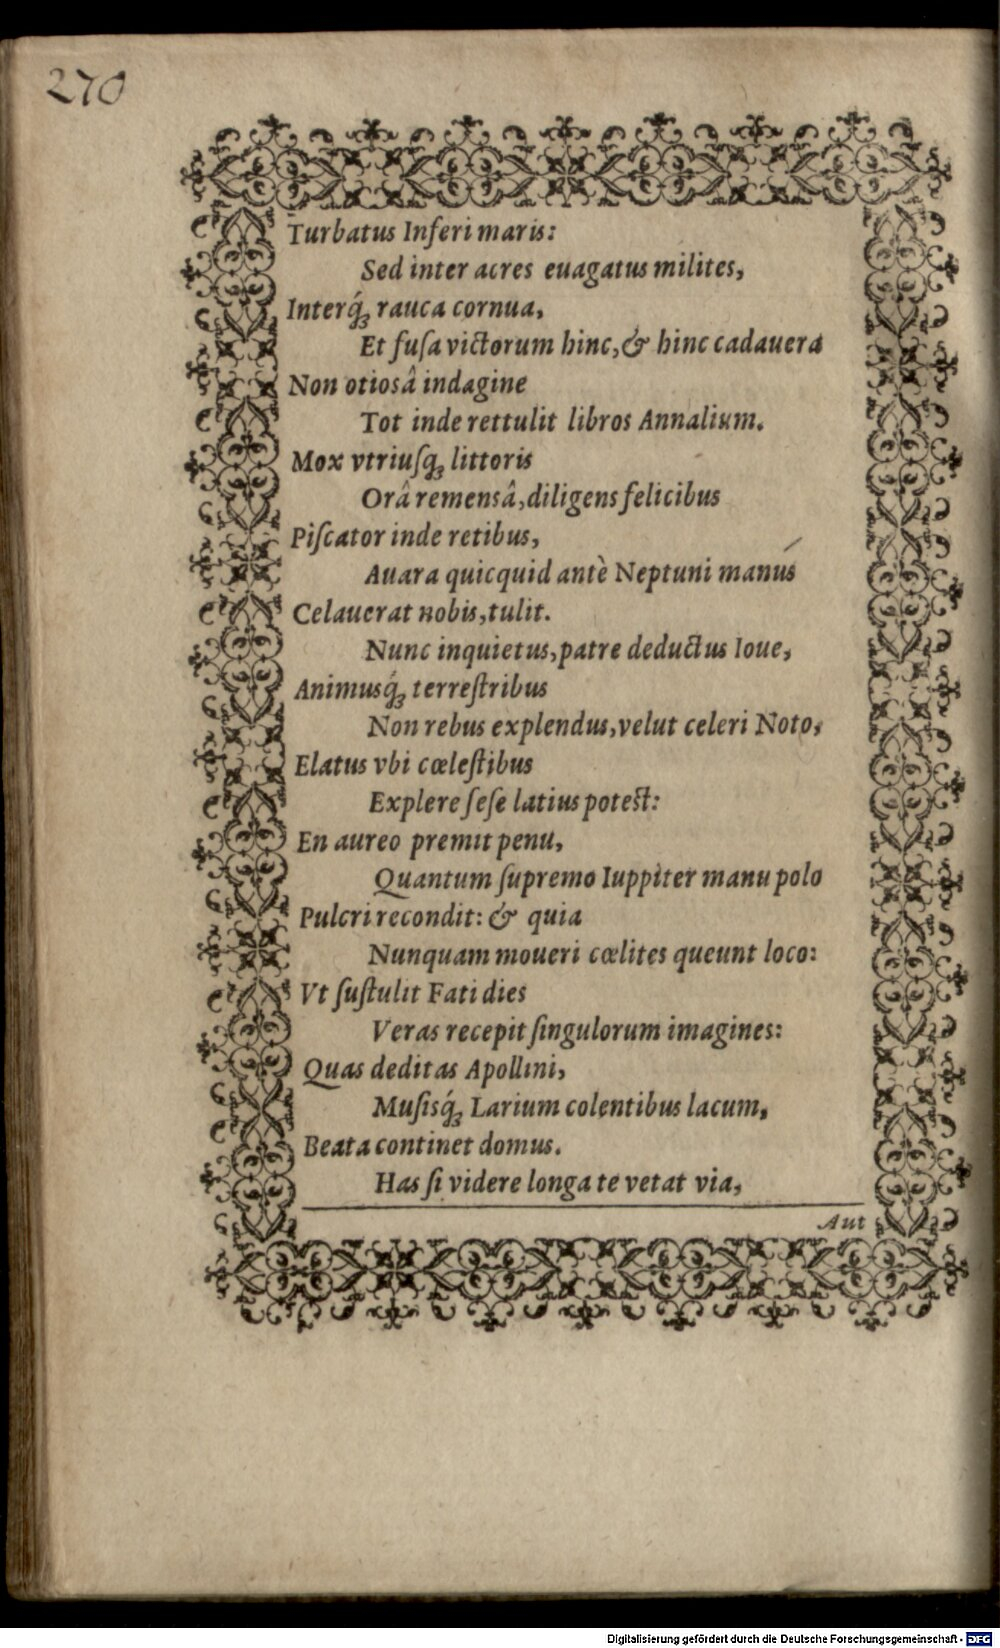 270
Turbatus Inferi maris:
Sed inter acres euagatus milites,
Interq́ꝫ rauca cornua,
Et fuſa victorum hinc, & hinc cadauera
Non otiosâ indagine
Tot inde rettulit libros Annalium.
Mox vtriuſqꝫ littoris
Orâ remensâ, diligens felicibus
Piſcator inde retibus,
Auara quicquid antè Neptuni manús
Celauerat nobis, tulit.
Nunc inquietus, patre deductus Ioue,
Animusq́ꝫ terreſtribus
Non rebus explendus, velut celeri Noto,
Elatus vbi cœleſtibus
Explere ſeſe latius potest:
En aureo premit penu,
Quantum ſupremo Iuppiter manu polo
Pulcri recondit: & quia
Nunquam moueri cœlites queunt loco:
Vt ſuſtulit Fati dies
Veras recepit ſingulorum imagines:
Quas deditas Apollini,
Muſisq́ꝫ Larium colentibus lacum,
Beata continet domus.
Has ſi videre longa te vetat via,
Aut
Digitalisierung gefördert durch die Deutsche Forschungsgemeinschaft - DFG